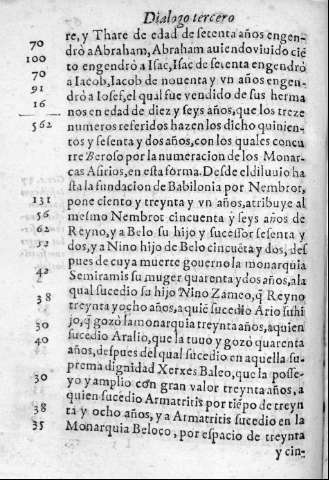 Dialogo tercero
re, y Thare de edad de setenta años engen-
70 drò a Abraham, Abraham auiendo viuido ciē
100 to engendrò a Isac, Isac de sesenta engendrò
70 a Iacob, Iacob de nouenta y vn años engen-
91 drò a Iosef, el qual fue vendido de sus herma
16 nos en edad de diez y seys años, que los treze
562 numeros referidos hazen los dicho quinien-
tos y sesenta y dos años, con los quales concu
rre Beroso por la numeracion de los Monar-
cas Asirios, en esta forma. Desde el diluuio ha
sta la fundacion de Babilonia por Nembrot,
131 pone ciento y treynta y vn años, atribuye al
56 mesmo Nembrot cincuenta y seys años de
62 Reyno, y a Belo su hijo y sucessor sesenta y
52 dos, y a Nino hijo de Belo cincuēta y dos, des
pues de cuya muerte gouerno la monarquia
42 Semiramis su muger quarenta y dos años, a la
qual sucedio su hijo Nino Zameo, q̄ Reyno
38 treynta y ocho años, a quiē sucedio Ario su hi
jo, q̄ gozò la monarquia treynta años, a quien
30 sucedio Aralio, que la tuuo y gozò quarenta
40 años, despues del qual sucedio en aquella su-
prema dignidad Xerxes Baleo, que la posse-
30 yo y amplio con gran valor treynta años, a
quien sucedio Armatritis por tiēpo de treyn
38 ta y ocho años, y a Armatritis sucedio en la
35 Monarquia Beloco, por espacio de treynta
y cin-